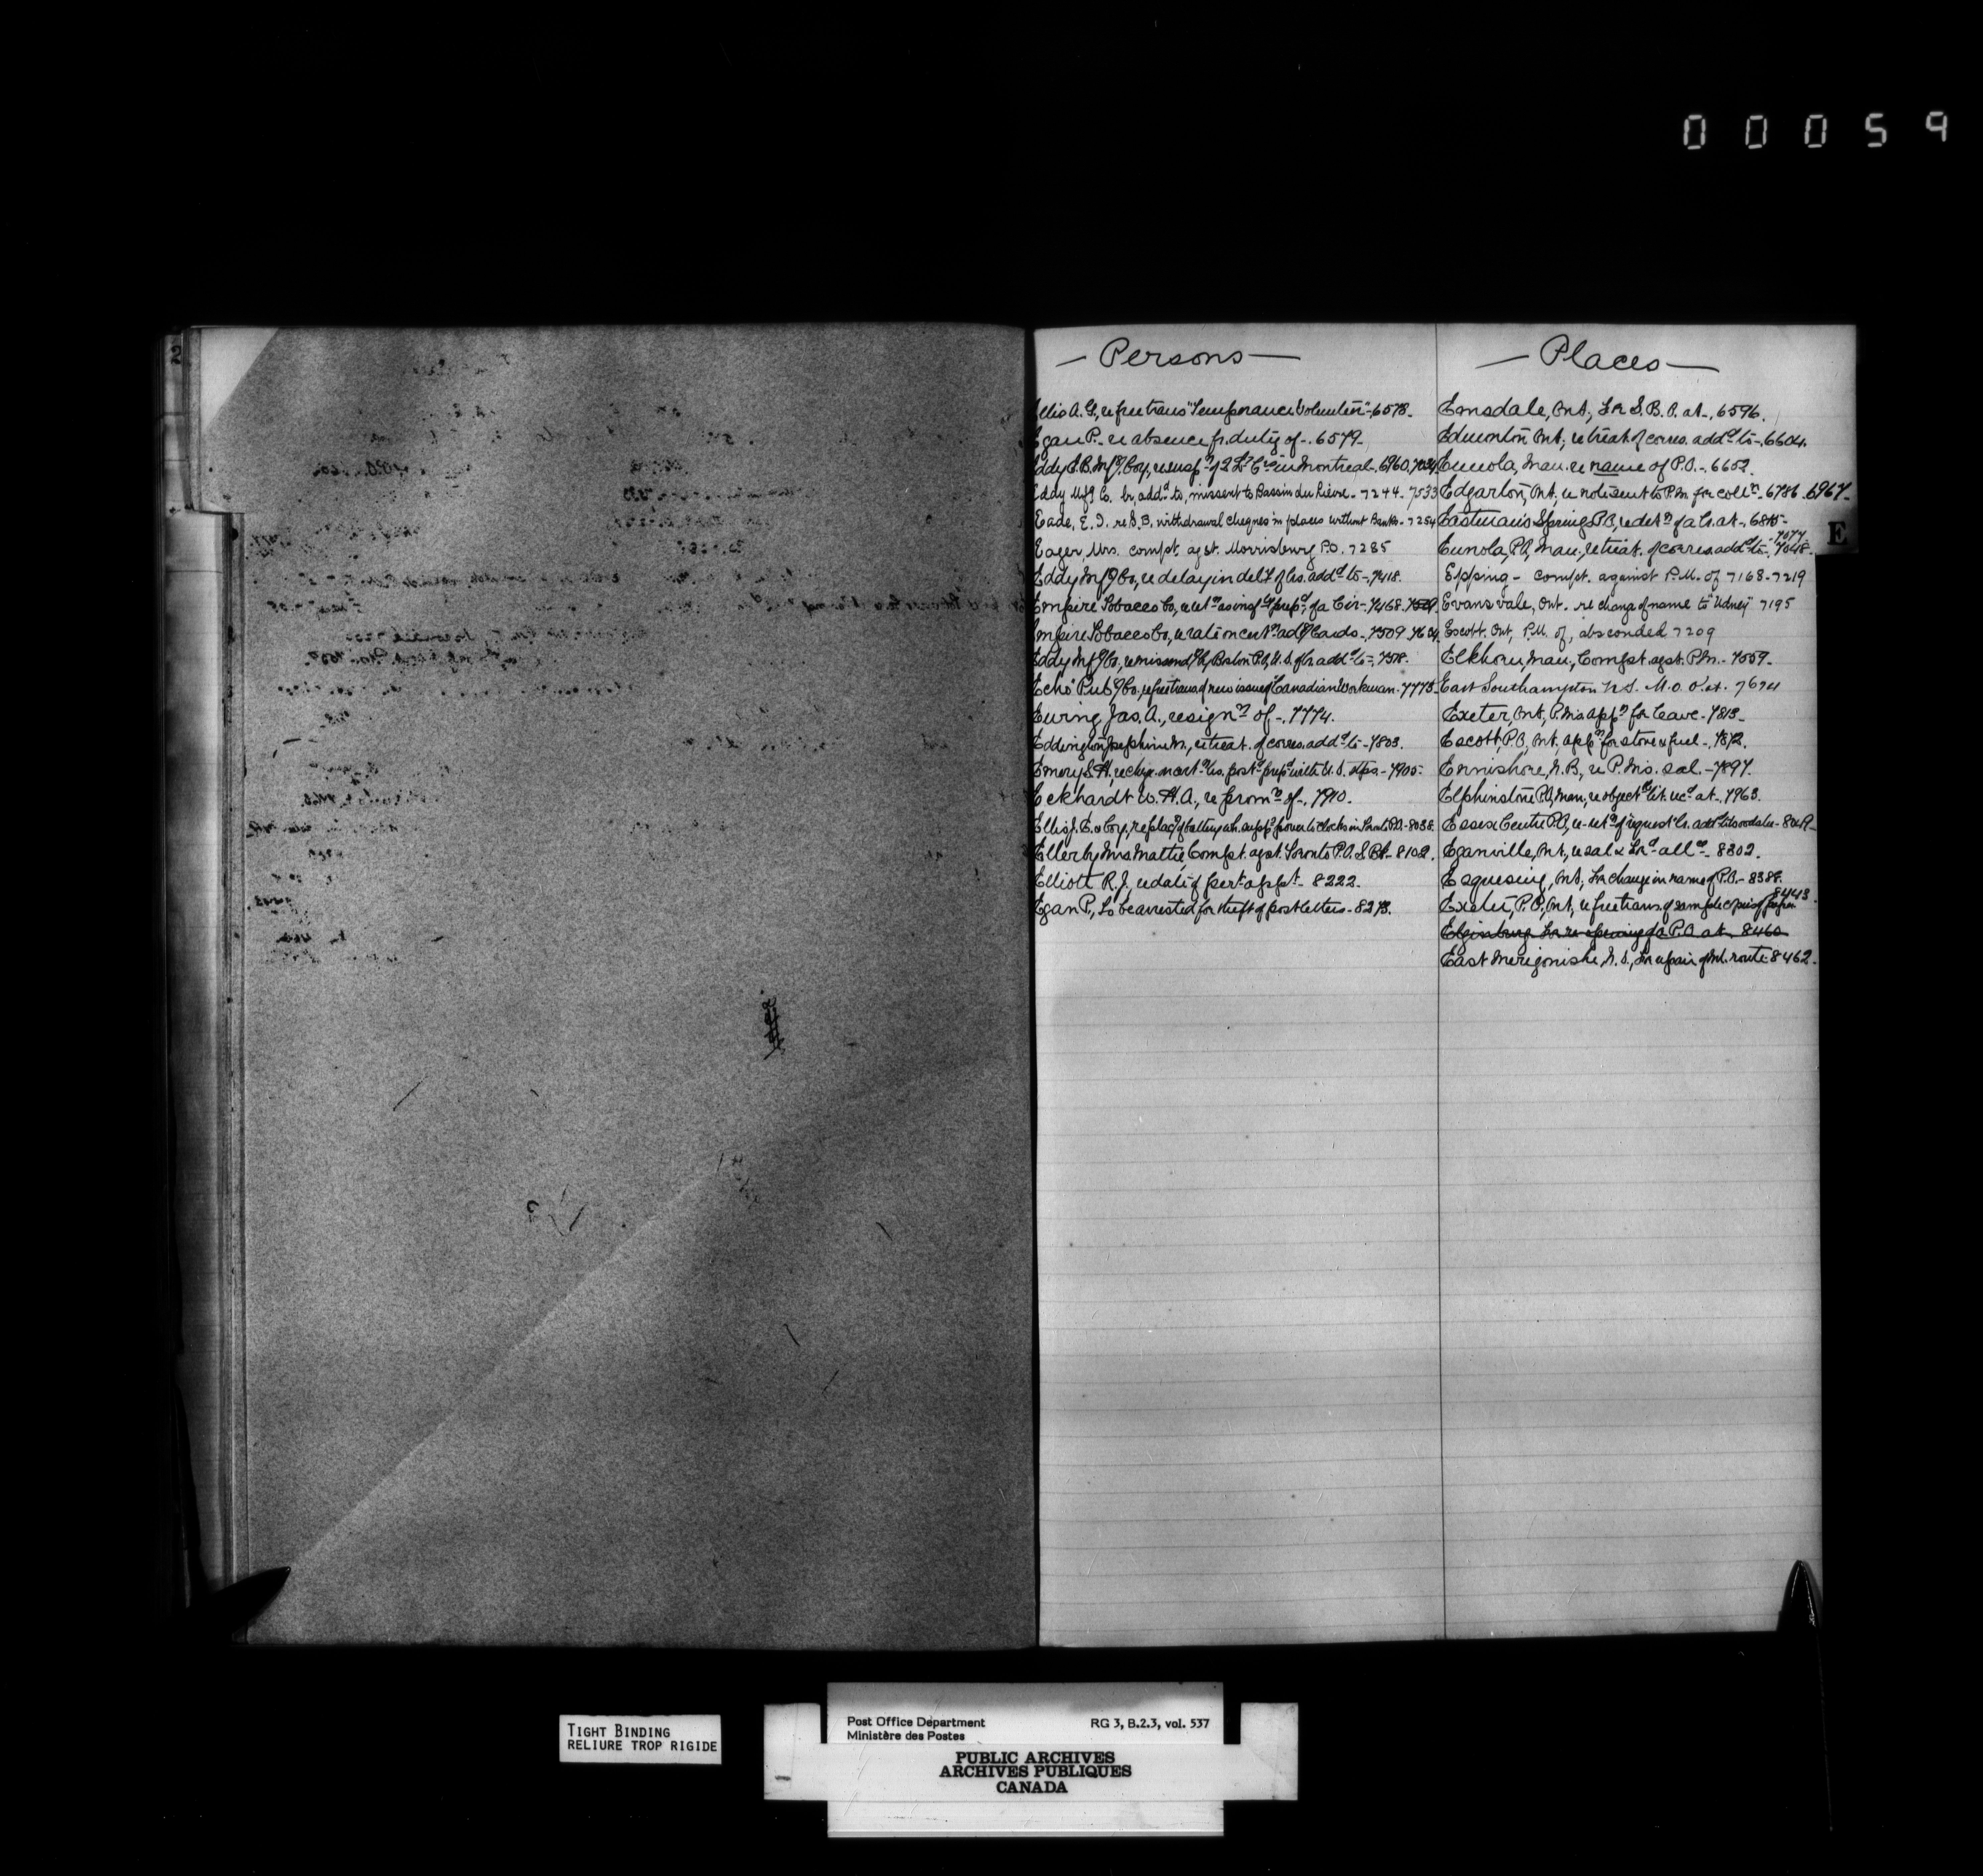 00059
2
— Persons —
Ellis A. G., re free trans "Temperance Volunteer" - 6578.
Egan P. - re absence fr. duty of -, 6579.
Eddy E.B. Mfg Coy, re susp of 2 in Montreal -, 6960,
Eddy Mfg Co. lr add.d to, missent to Bassin du Lievre - 7244 - 7533
Eade, E. I. re S.B. withdrawal cheques in places without Banks - 7254
Eager Mrs. compt. agst. Morrisburg P.O. 7285
Eddy Mfg Co., re delay in del.y of lrs. add.d to -, 7418.
Empire Tobacco Co, of a Cir - 7468.
Empire Tobacco Co, adv Cards -, 7509
Eddy Mfg Co., Boston P.O, U.S. of lr add.d to -, 7578.
"Echo" Pub.g Co., re free trans of new issue of Canadian Workman - 7773.
Ewing Jas. A., resign.n of -, 7774.
Eddington Josephine M., re treat. of corres. add.d to - 7803.
Emory S. H. post.d prep.d with U.S. stps. - 7905.
Eckhardt W. H. A., re prom.n of -, 7910.
Ellis J. E. & Coy, re of battery power to clocks in Toronto P.O. - 8038.
Ellerby Mrs Mattie, Compt. agst. Toronto P.O. S.B. - 8102.
Elliott R. J., re date of pert appt. - 8222.
Egan P., to be arrested for theft of post letters - 8273.
— Places —
Emsdale, Ont, for S. B. O. at -, 6596.
Edmonton Ont; re treat. of corres. add.d to -, 6604.
Eunola, Man. re name of P.O. - 6652.
Edgarton, Ont, re notice sent to P.M. for coll.n - 6786. 6967 -
Eastman's Spring P.O, re det.n of a lr. at -, 6815 -
7077
Eunola, P.O, Man., re treat. of corres. add.d to -, 7048.
Epping - compt. against P.M. of 7168 - 7219
Evansvale, Ont. re change of name to "Udney" 7195
Escott. Ont, P.M. of, absconded 7209
Elkhorn, Man, Compt. agst. P.M. - 7559 -
East Southampton N.S. M.O.O. at. 7674
Exeter, Ont, P.M's app.n for leave - 7813 -
Escott P.O, Ont, app.n for stove & fuel -, 7872.
Ennishore, N.B, re P.M's. sal. - 7897.
Elphinstone P.O, Man, re object lit. rec.d at -, 7963.
Essex Centre P.O, re - ret.n of request lr. add.d to Woodslee - 8049 -
Eganville, Ont, re sal & all.ce - 8302.
Esquesing, Ont, for change in name of P.O. - 8388.
8443
Exeter, P.O, Ont, re free trans. of sample copies of paper.
Elginburg for re-opening of a P.O at 8460
East Merigonishe, N.S., for repair of Ml. route - 8462.
E
TIGHT BINDING
RELIURE TROP RIGIDE
Post Office Department
Ministère des Postes
RG 3, B.2.3, vol. 537
PUBLIC ARCHIVES
ARCHIVES PUBLIQUES
CANADA